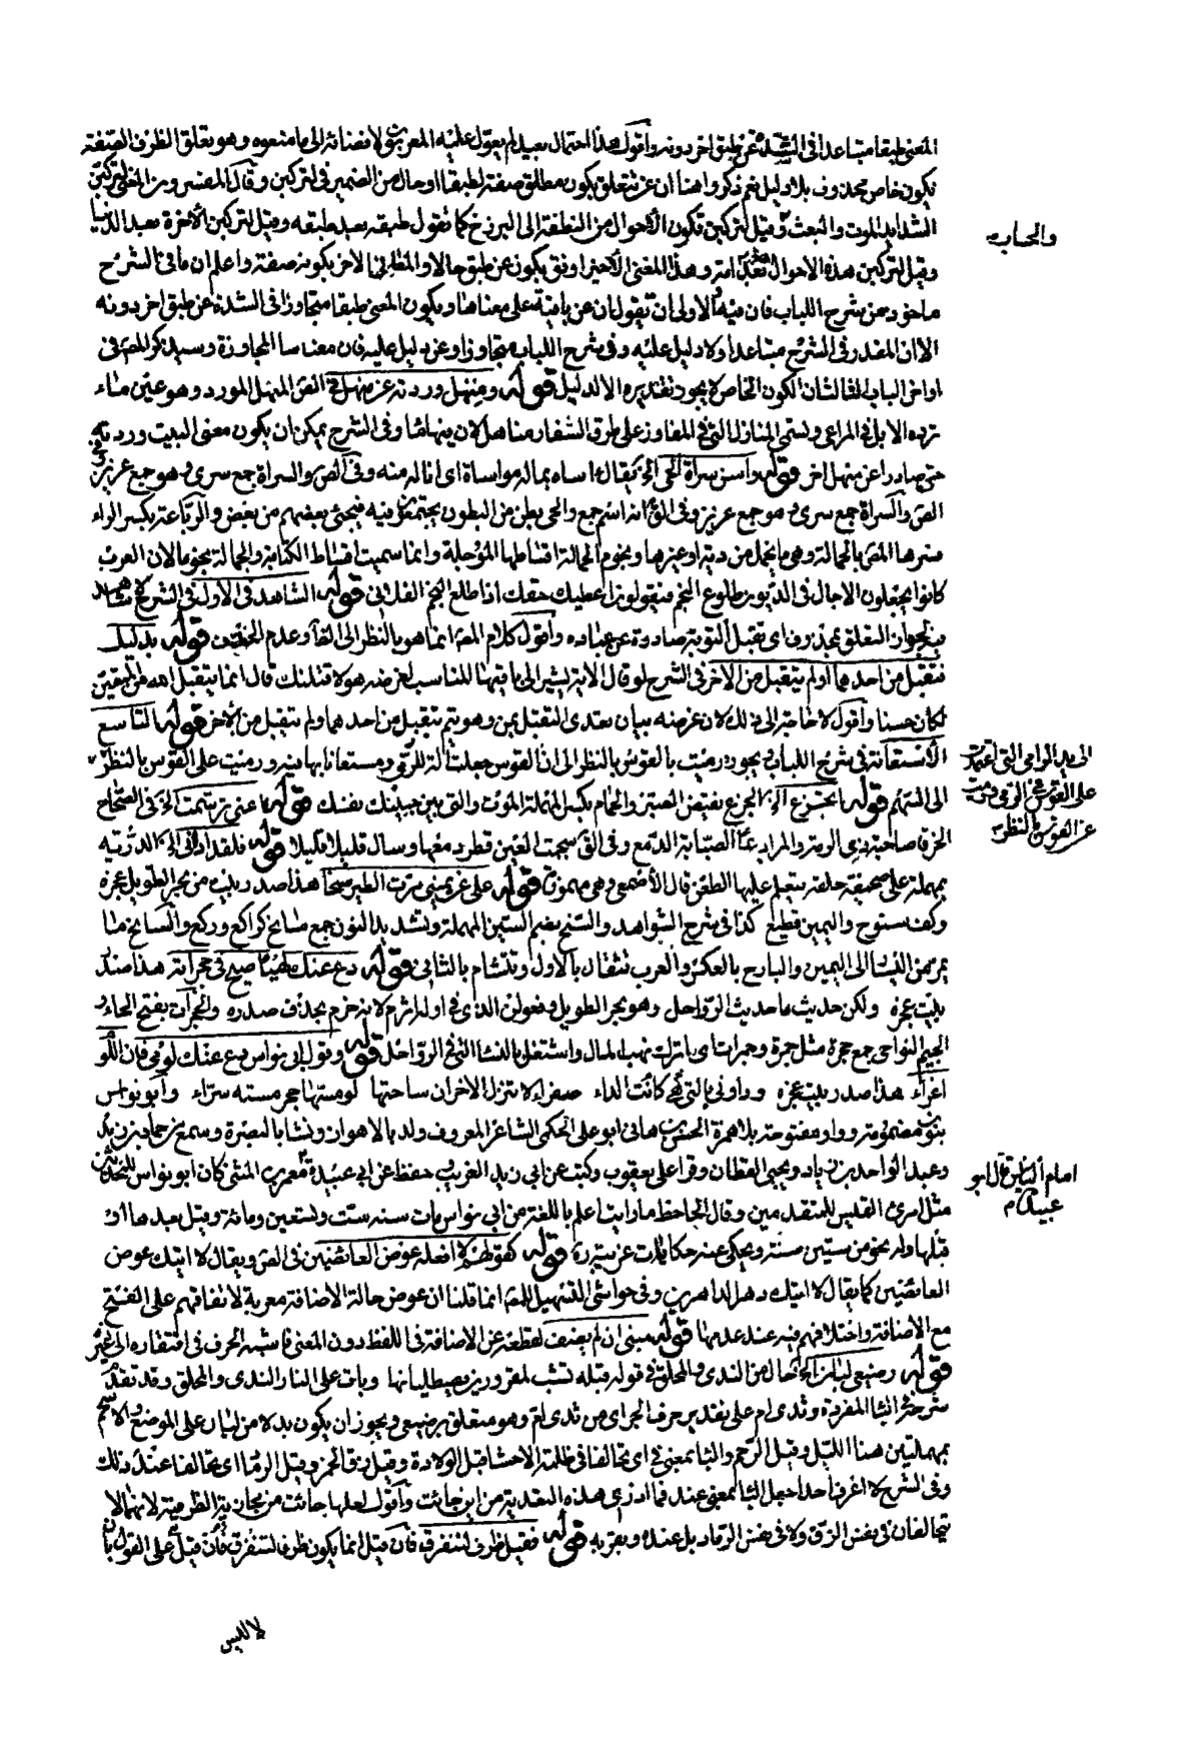 المعنى طبقا متباعدا في الشدة عن طبق اخر دونه واقول هذا احتمال بعيد لم يعول عليه المعربون لافضائه الى ما منعوه وهو تعلق الظرف الصفة
بكون خاص محذوف بلا دليل نعم ذكروا هنا ان عن تتعلق بكون مطلق صفة لطبقا او حال من الضمير في لتركبن وقال المفسرون المعنى لتركبن
الشدايد الموت والبعث وقيل لتركبن الاحوال من النطفة الى البرزخ كما تقول طبقة بعد طبقة وقيل لتركبن الآخرة بعد الدنيا
والحساب
وقيل لتركبن هذه الاحوال امة بعد امة وهذا المعنى الاخير اوفق بكون عن طبق حالا والمعنى الآخر بكونه صفة واعلم ان ما في الشرح
ماخوذ من شرح اللباب فان فيه الاولى ان تقول ان عن باقية على معناها ويكون المعنى طبقا متجاوزا في الشدة عن طبق اخر دونه
الا ان المقدر في الشرح متباعدا ولا دليل عليه وفي شرح اللباب متجاوزا وعن دليل عليه فان معناها المجاوزة وسيذكر المص في
اواخر الباب الثالث ان الكون الخاص لا يجوز تقديره الا لدليل قوله ومنهل وردته عن منهل في الص المنهل المورد وهو عين ماء
ترده الابل في المراعي وتسمى المنازل التي في المفاوز على طرق السفار مناهل لان فيها ماء وفي الشرح يمكن ان يكون معنى البيت وردته
حتى صادرا عن منهل اخر قوله واسن سراة الحي الخ يقال آساه بماله مواساة اى اناله منه وفي الص والسراة جمع سري وهو جمع عزيز
الص والسراة جمع سري وهو جمع عزيز وفي الق انه اسم جمع والحي بطن من البطون يجتمعون فيه فيجئ بعضهم من بعض والرباعة بكسر الراء
فسرها المص بالحمالة وهي ما يتحمل من دية او غيرها ونجوم الحمالة اقساطها المؤجلة وانما سميت اقساط الكتابة والحمالة نجوما لان العرب
كانوا يجعلون الاجال في الديون بطلوع النجم فيقولون اعطيك حقك اذا طلع النجم الفلاني قوله الشاهد في الاولى في الشرح لا شاهد
فيه لجواز التعلق بمحذوف اى تقبل التوبة صادرة عن عباده واقول كلام المص انما هو بالنظر الى الظاهر وعدم الحذف قوله بدليل
فتقبل من احدهما ولم يتقبل من الآخر في الشرح لو قال الاية ليشير الى ما فيها المناسب لغرضه هو لاقتلنك قال انما يتقبل الله من المتقين
لكان حسنا واقول لا حاجة الى ذلك لان غرضه بيان تعدى التقبل بمن وهو يتم بتقبل من احدهما ولم يتقبل من الآخر قوله التاسع
الاستعانة في شرح اللباب يجوز رميت بالقوس بالنظر الى ان القوس جعلت آلة للرمي ومستعانا بها فيه ورميت على القوس بالنظر
الى يد الرامي التي اعتمدت
على القوس في الرمي ورميت
عن القوس بالنظر
الى السهم قوله اتجزع الخ الجزع نقيض الصبر والحمام بكسر المهملة الموت والتي بين جنبيك نفسك قوله اعن ترسمت الخ في الصحاح
الخرقا صاحبة ذي الرمة والمراد بماء الصبابة الدمع وفي الق سجمت العين قطر دمعها وسال قليلا قليلا قوله فلقد اراني الخ الدرئية
بمهملة على صحيفة حلقة يتعلم عليها الطعن قال الاصمعي وهي مهموزة قوله على عن يميني مرت الطير سنحا هذا صدر بيت من بحر الطويل عجزه
وكيف سنوح واليمين قطيع كذا في شرح الشواهد والسنح بضم السين المهملة وتشديد النون جمع سانح كراكع وركع والسانح ما
يمر من اليسار الى اليمين والبارح بالعكس والعرب تتفال بالاول وتتشام بالثاني قوله دع عنك نهبا صيح في حجراته هذا صدر
بيت عجزه ولكن حديث ما حديث الرواحل وهو بحر الطويل وفعولن الذي في اوله اثرم لانه خرم بحذف صدره والحجرات بفتح الحاء و
الجيم النواحي جمع حجرة مثل جمرة وجمرات اى اترك نهب المال واشتغل بالنسا التي في الرواحل قوله وقول ابي نواس دع عنك لومي فان اللو
اغراء هذا صدر بيت عجزه وداوني بالتي كانت هي الداء صفراء لا تنزل الاحزان ساحتها لو مسها حجر مسته سراء وابو نواس
بنون مضمومة وواو مفتوحة بلا همزة الحسن بن هاني ابو علي الحكمي الشاعر المعروف ولد بالاهواز ونشا بالبصرة وسمع من حماد بن زيد
وعبد الواحد بن زياد ويحيى القطان وقرا على يعقوب وكتب عن ابي زيد الغريب وحفظ عن ابي عبيدة معمر بن المثنى كان ابو نواس للمحدثين
امام الناس قال ابو
عبيدة
مثل امرئ القيس للمتقدمين وقال الجاحظ ما رايت اعلم باللغة من ابي نواس مات سنة ست وتسعين ومائة وقيل بعدها او
قبلها وله نحو من ستين سنة ويحكى عنه حكايات غزيرة قوله كقولهم لا افعله عوض العائضين في الص ويقال لا اتيك عوض
العائضين كما يقال لا اتيك دهر الداهرين وفي حواشي التسهيل للمص انما قلنا ان عوض حالة الاضافة معربة لاتفاقهم على الفتح
مع الاضافة واختلافهم فيه عند عدمها قوله مبني ان لم يضف لقطعه عن الاضافة في اللفظ دون المعنى فاشبه الحرف في افتقاره الى غيره
قوله رضيعي لبان الخ حال من الندى والمحلق في قوله قبله تشب لمقرورين يصطليانها وبات على النار الندى والمحلق وقد تقدم
شرحه في البا المفردة وثدى ام على تقدير حرف الجر اى من ثدى ام وهو متعلق برضيعي ويجوز ان يكون بدلا من لبان على الموضع والاسحم
بمهملتين هنا الليل وقيل الرحم والبا بمعنى في اى تحالفا في ظلمة الاحشا قبل الولادة وقيل زق الخمر وقيل الرماد اى تحالفا عند ذلك
وفي الشرح لا اعرف احدا جعل البا بمعنى عند فما ادري هذه التعدية من اين جاءت واقول لعلها جاءت من مجازية الظرفية لانهما لا
يتحالفان في نفس الزق ولا في نفس الرماد بل عنده وبقربه قوله فقيل ظرف لنتفرق فان قيل انما يكون ظرفا لنتفرق فان قيل على القول بان
لا لليس